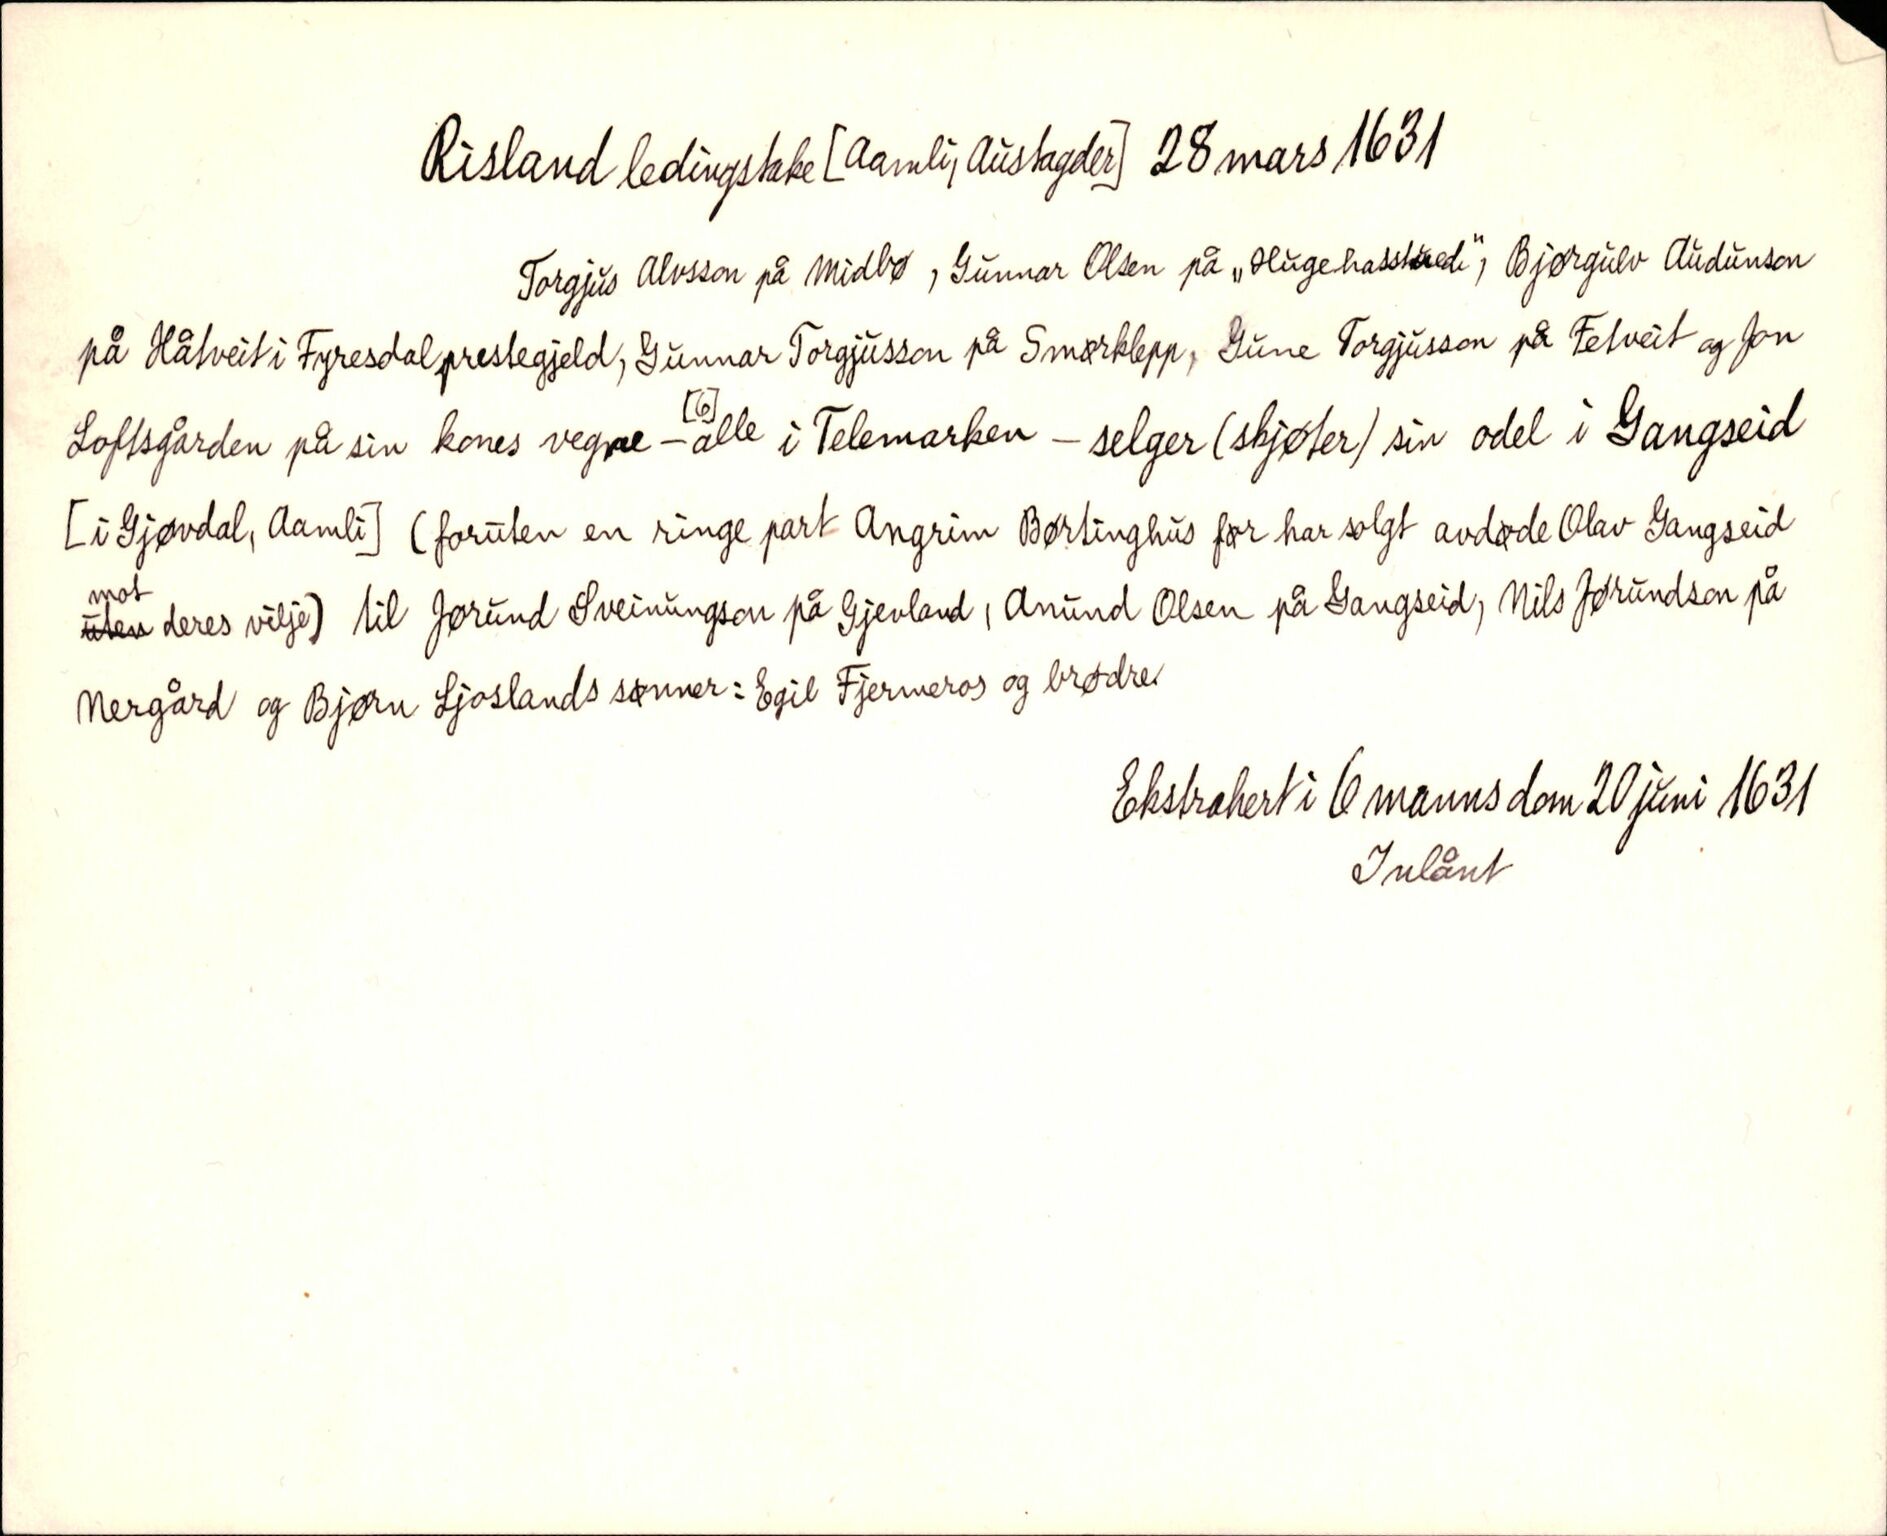 Risland ledingstake [Aamli, Austagder] 28 mars 1631
Torgjus Alvsson på Midbø, Gunnar Olsen på „Hugehasstuedi", Bjørgulv Audunson
på Håtveit i Fyresdal prestegjeld, Gunnar Torgjusson på Smørklepp, Gune Torgjusson på Fetveit og Jon
Loftsgården på sin kones vegne – [6] alle i Telemarken – selger (skjøter) sin odel i Gangseid
[i Gjøvdal, Aamli] (foruten en ringe part Angrim Børtinghus før har solgt avdøde Olav Gangseid
mot
uten deres vilje) til Jørund Sveinungson på Gjevland, Anund Olsen på Gangseid, Nils Jørundson på
Nergård og Bjørn Ljoslands sønner: Egil Fjermeros og brødre.
Ekstrahert i 6 manns dom 20 juni 1631
Inlånt